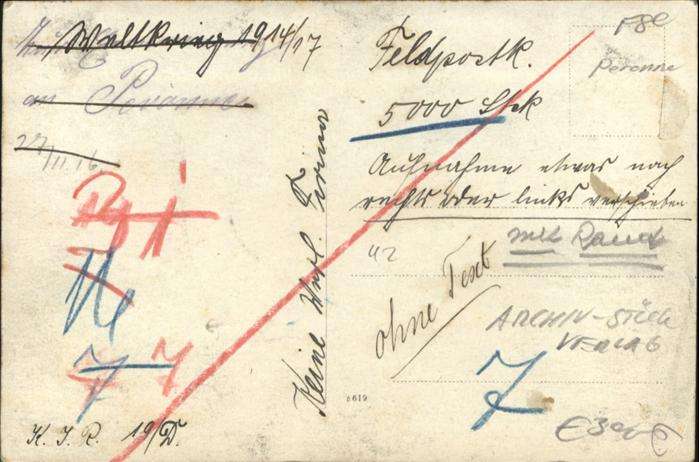 Weltkrieg 1914/17
an Peronne
27/III 16
Feldpostk.
5000 Stck
Aufnahme etwas nach
rechts oder links verschieben
mit Rand
42
ohne Text
Keine Verl. Firma
ARCHIV-STÜCK
VERLAG
7
7 7
K. I. R. 19/D.
0619
F8e
Peronne